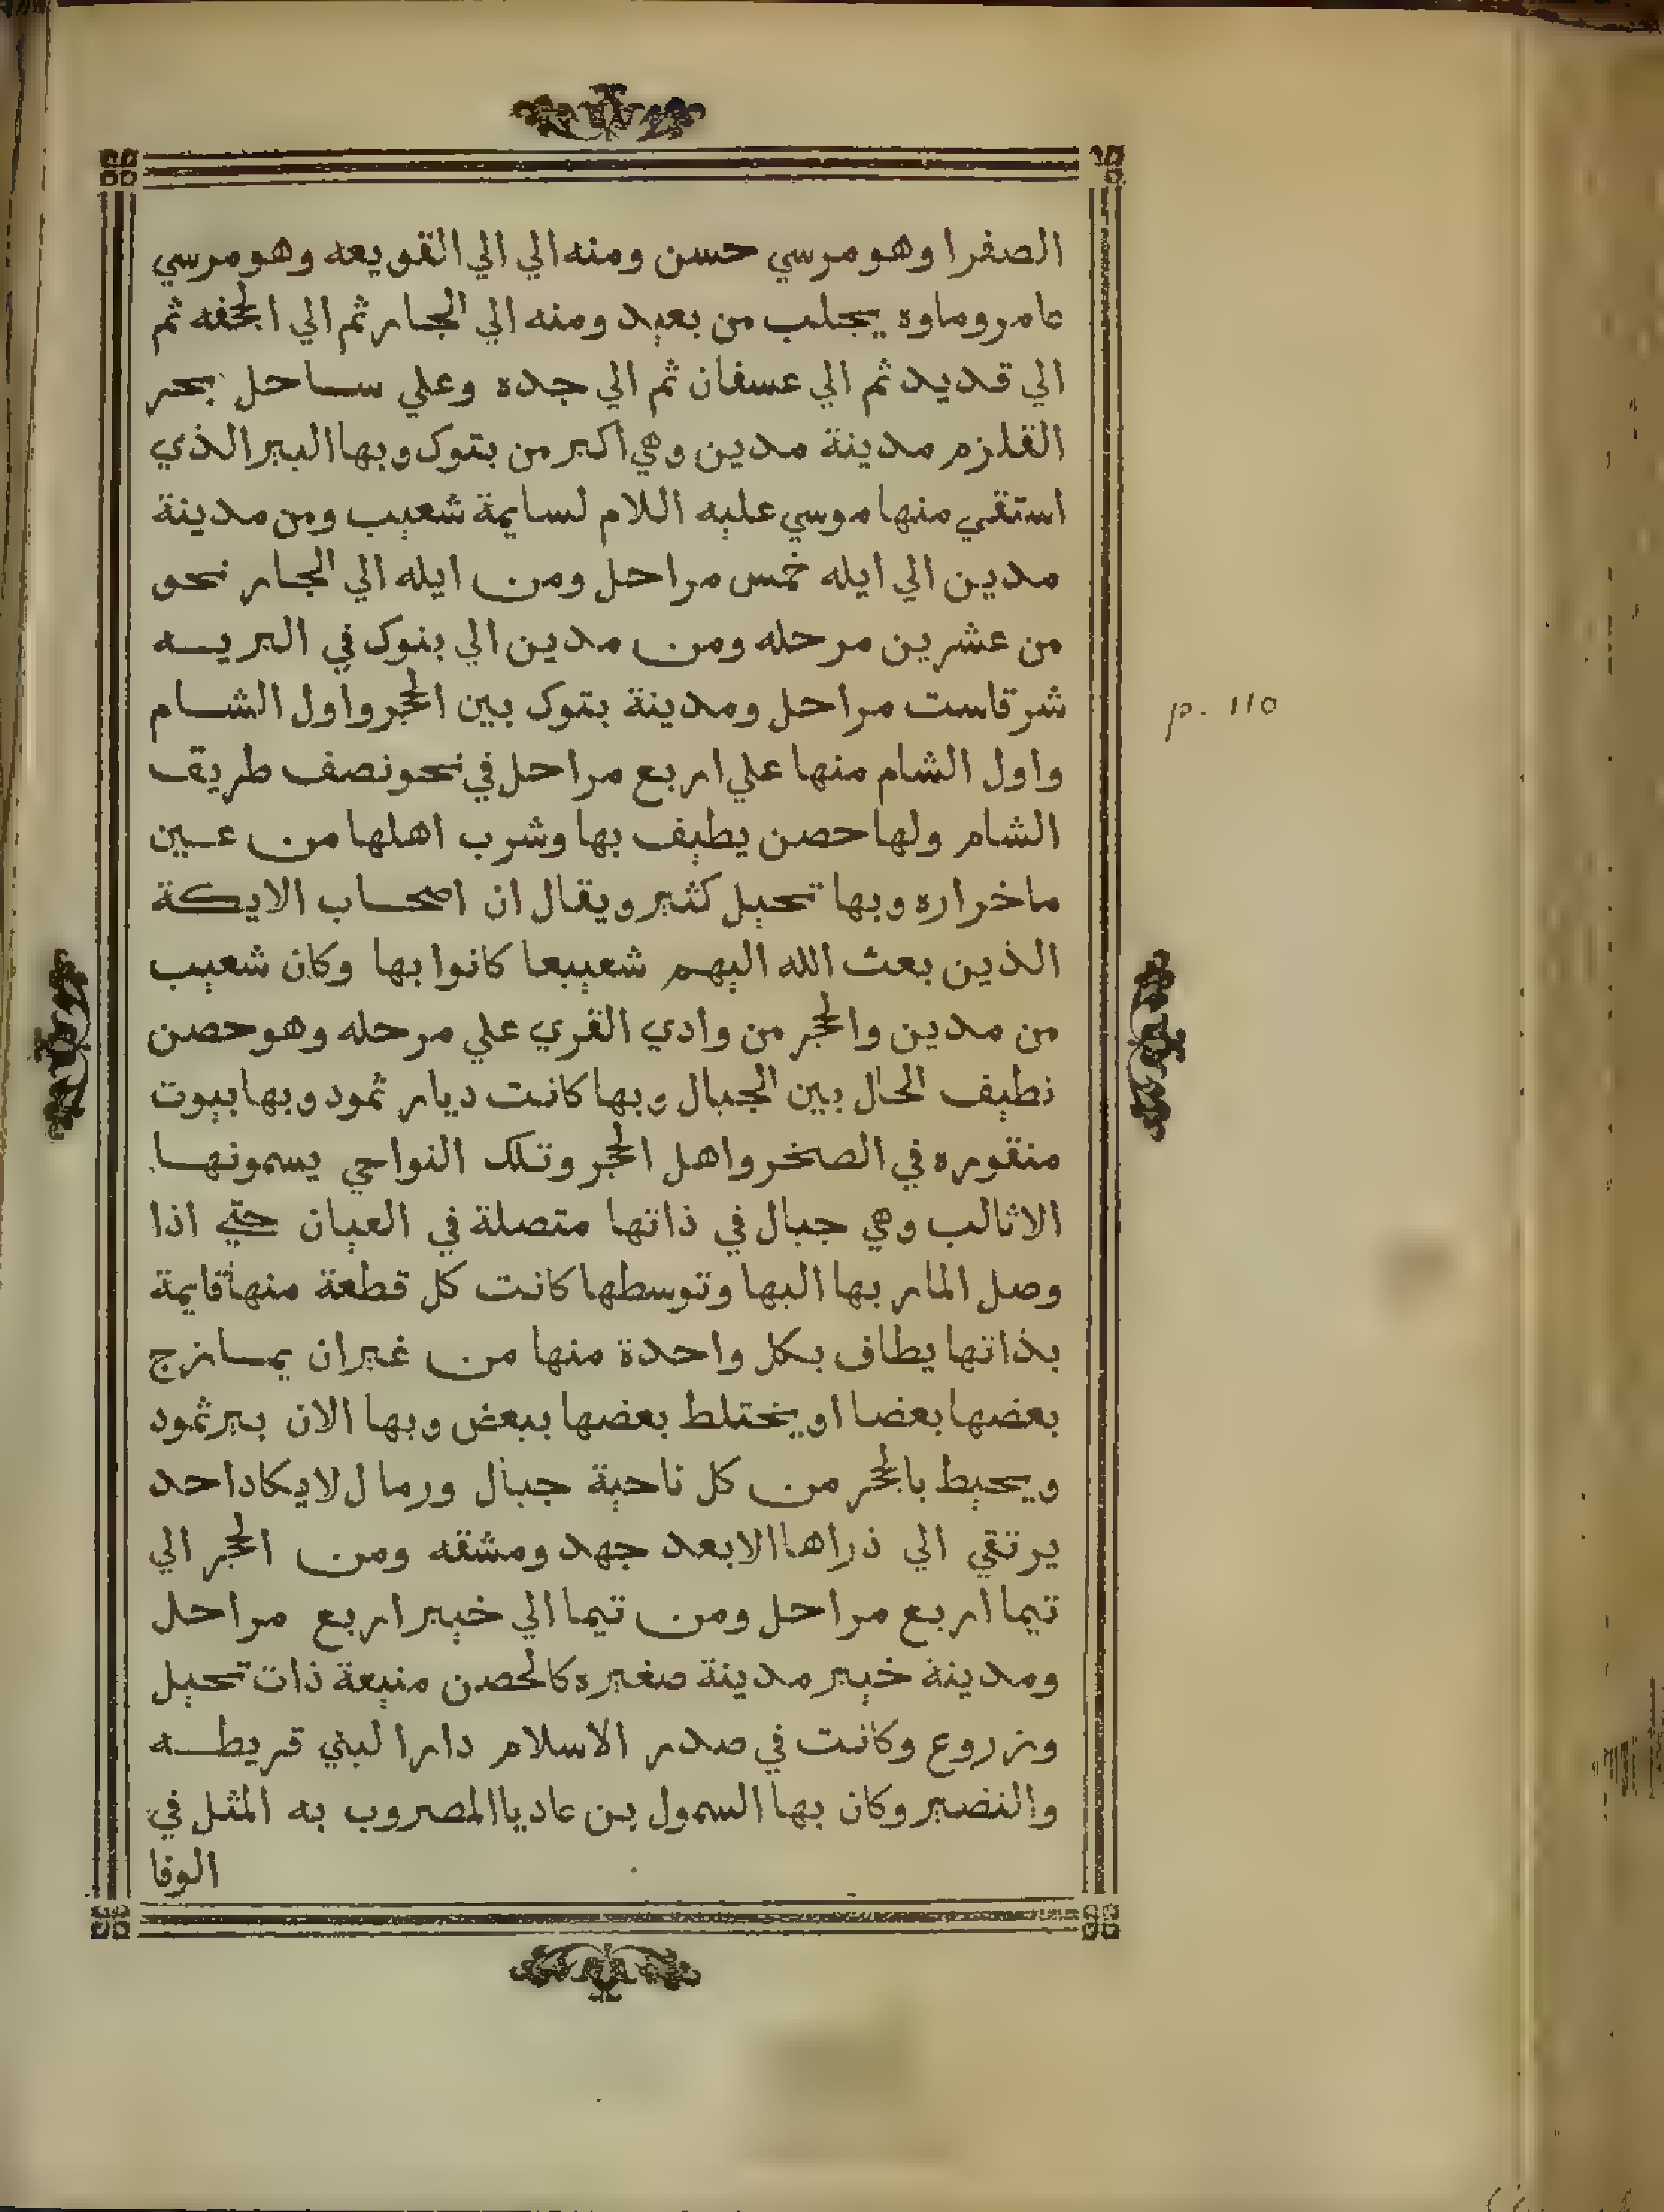 الصفرا وهو مرسي حسن ومنه الي الي القويعه وهو مرسي
عامر وماوه يجلب من بعيد ومنه الي الجار ثم الي الجحفه ثم
الي قديد ثم الي عسفان ثم الي جده وعلي ساحل بحر
القلزم مدينة مدين وهي اكبر من بتوك وبها البير الذي
استقي منها موسي عليه اللام لسايمة شعيب ومن مدينة
مدين الي ايله خمس مراحل ومن ايله الي الجار نحو
من عشرين مرحله ومن مدين الي بنوك في البريه
شرقاست مراحل ومدينة بتوك بين الحجر واول الشام
واول الشام منها علي اربع مراحل في نحو نصف طريق
الشام ولها حصن يطيف بها وشرب اهلها من عين
ماخراره وبها نحيل كثير ويقال ان اصحاب الايكة
الذين بعث الله اليهم شعيبعا كانوا بها وكان شعيب
من مدين والحجر من وادي القري علي مرحله وهو حصن
نطيف الحال بين الجبال وبها كانت ديار ثمود وبها بيوت
منقوره في الصخر واهل الحجر وتلك النواحي يسمونها
الاثالب وهي جبال في ذاتها متصلة في العيان حتي اذا
وصل المار بها اليها وتوسطها كانت كل قطعة منها قايمة
بذاتها يطاف بكل واحدة منها من غير ان يمازج
بعضها بعضا او يختلط بعضها ببعض وبها الان بير ثمود
ويحيط بالحجر من كل ناحية جبال ورمال لا يكاد احد
يرتقي الي ذراها الا بعد جهد ومشقه ومن الحجر الي
تيما اربع مراحل ومن تيما الي خيبر اربع مراحل
ومدينة خيبر مدينة صغيره كالحصن منيعة ذات نحيل
وزروع وكانت في صدر الاسلام دارا لبني قريطه
والنضير وكان بها السمول بن عاديا المصروب به المثل في
الوفا
p. 110